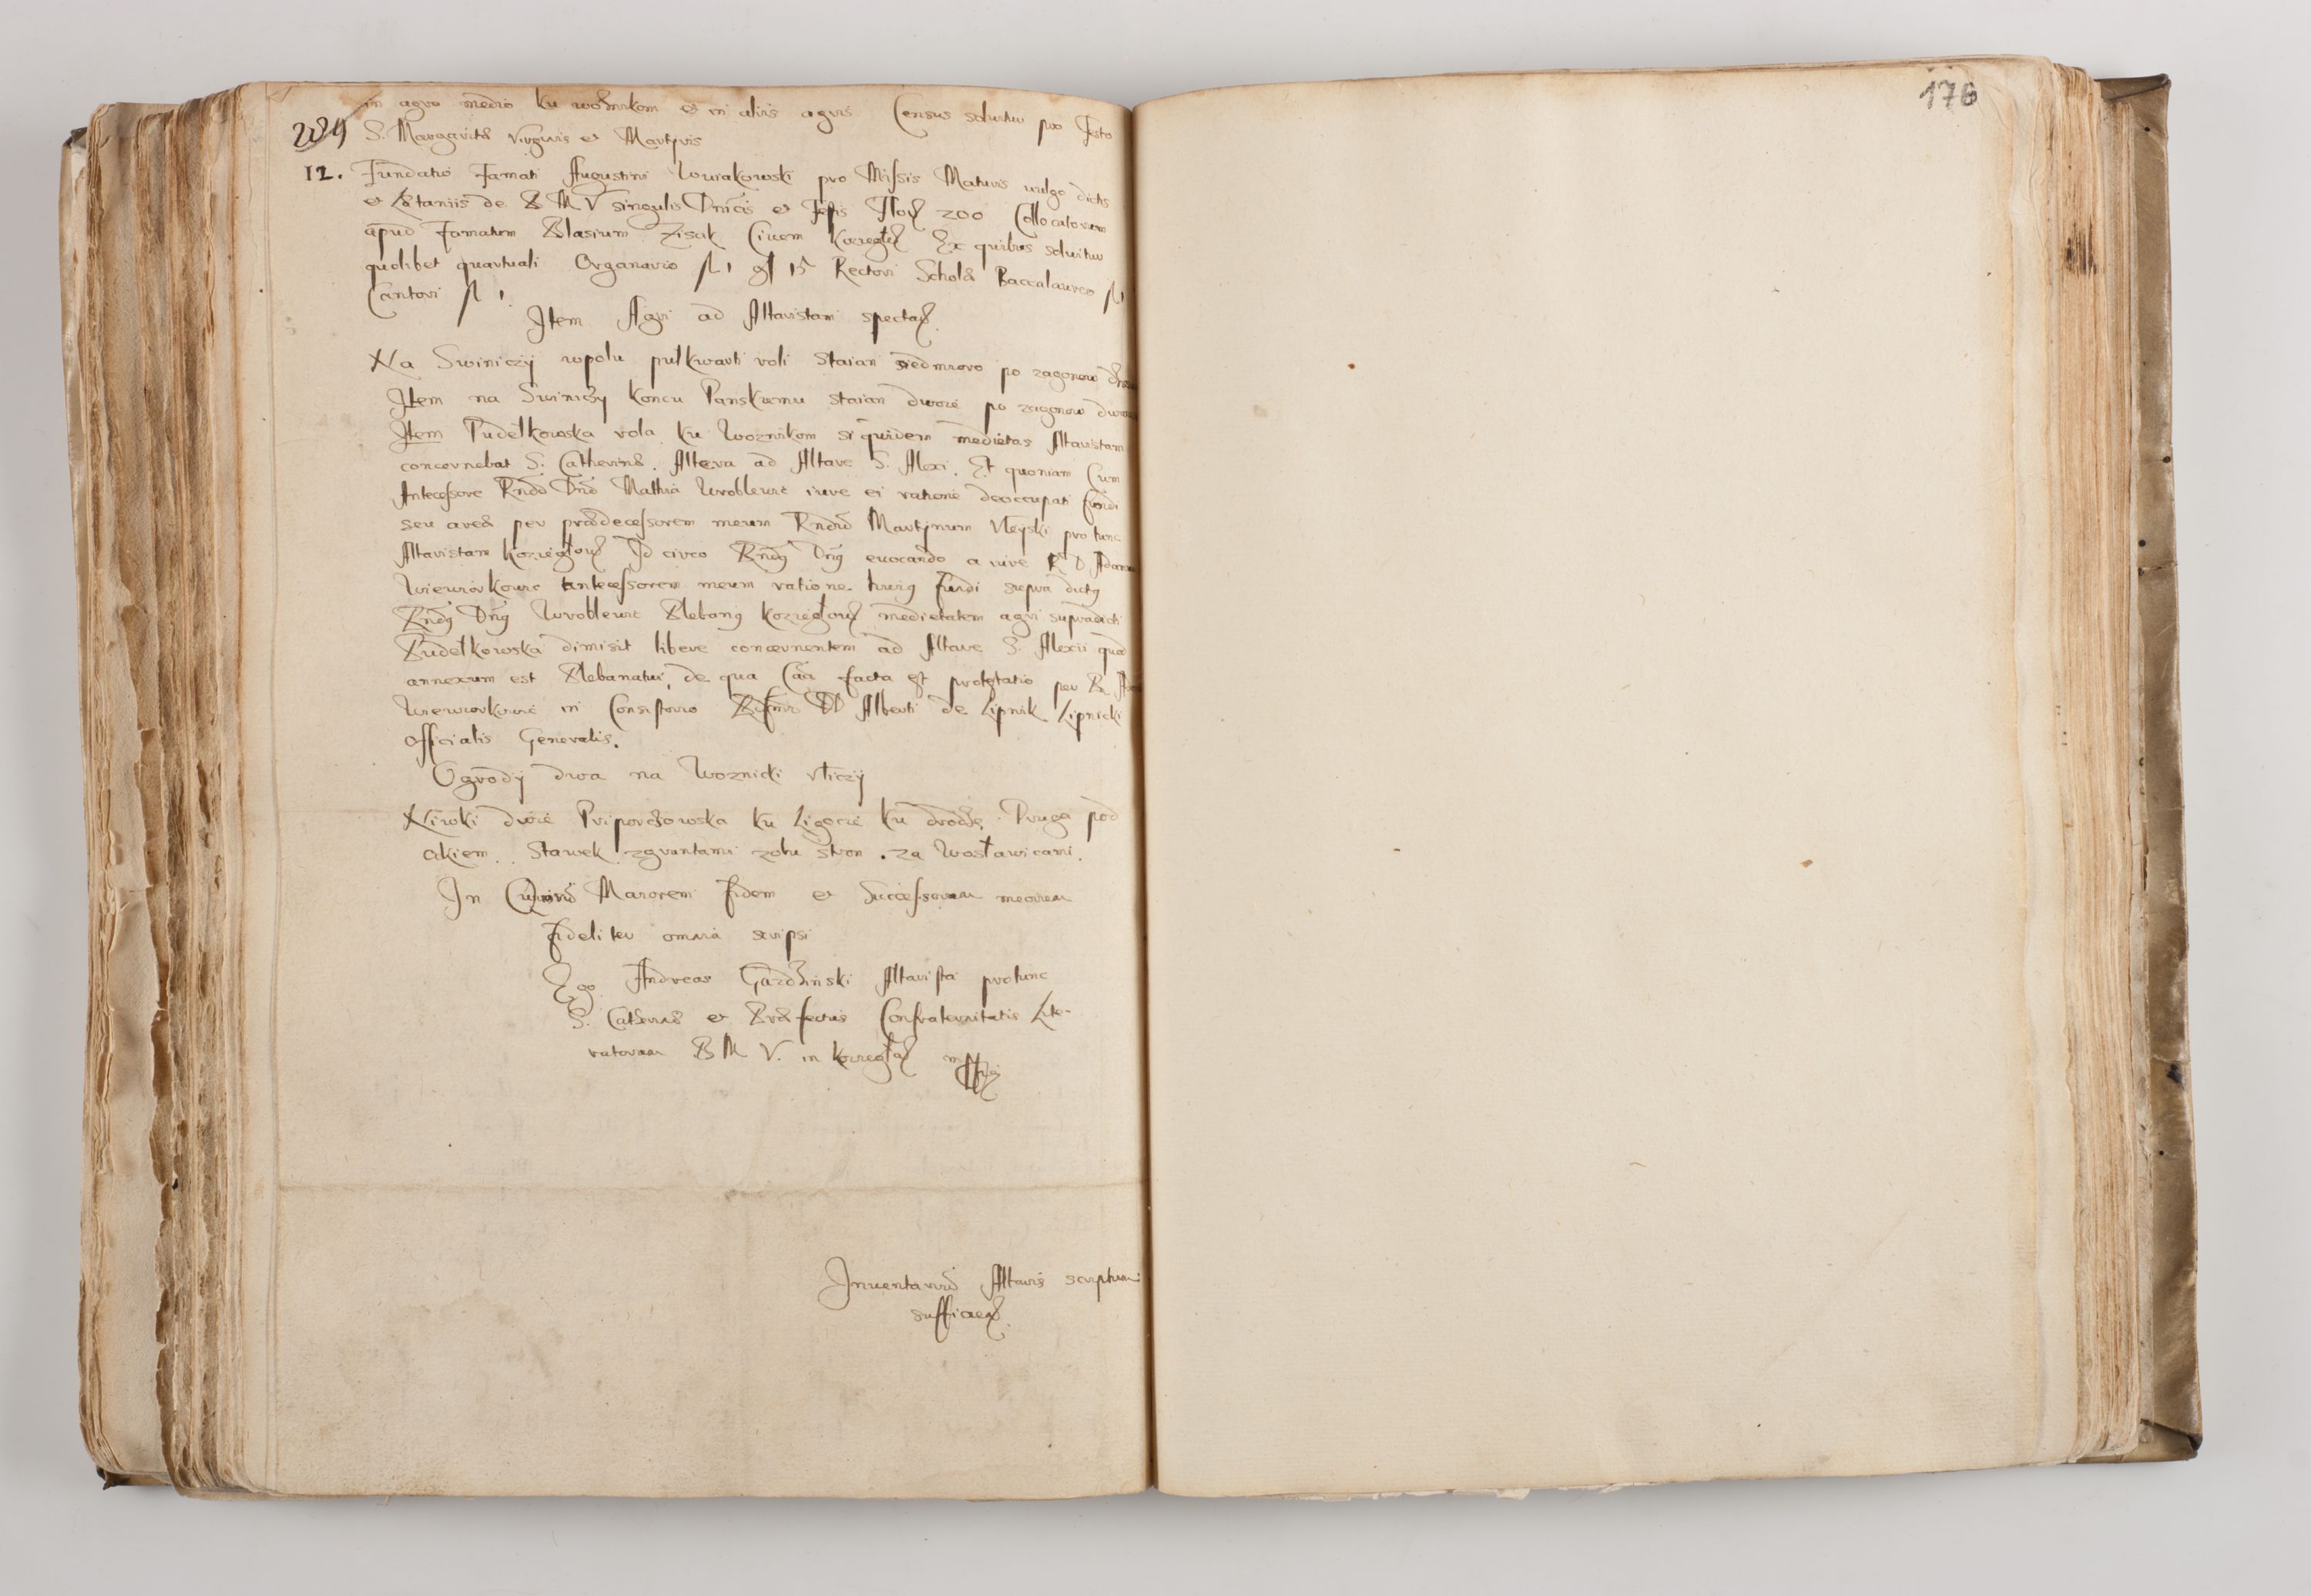 in agro medio ku woznikom et in aliis agris Census soluitur pro festo
284 S. Margaritæ Virginis et Martyris
12. Fundatio Famati Augustini Wuiakowski pro Missis Maturis vulgo dictis
et Lætaniis de B M V singulis Dnicis et Festis Flor 200 Collocatorum
apud Famatum Blasium Zisik Ciuem Ex quibus soluitur
quolibet quartuali Organario fl 1 gl 15 Rectori Scholæ Baccalaureo fl 1
Cantori fl 1
Item Agri ad Altaristam
Na Swiniczÿ wpolu pułkwarti roli Staian siedmroro po zagonow
Item na koncu Panskiemu staian dwoie po zagonow
Item Pudełkowska rola ku Woznikom siquidem medietas Altaristam
concernebat S. Catherinæ. Altera ad Altare S. Alexi. Et quoniam Cum
Antecessore Rndo Dno Mathia Wroblewic iure ei ratione deoccupati fundi
seu areæ per prædecessorem meum Rndū Martÿnum pro tunc
Altaristam Id circo Rndg Dng euocando a iure R D
antecessorem meum ratione huig fundi supra dictg
Rndg Dng Wroblewic Plebang medietatem agri supradicti
Pudełkowska dimisit libere concernentem ad Altare S. Alexii
annexum est Plebanatui, de qua facta est protestatio per R
in Consistorio Alberti de Lipnik Lipnicki
officialis Generalis.
Ogrodÿ dwa na Woznicki vliczÿ
Niwki dwie ku Ligocie ku drodze. Druga pod
Stawek zgruntami zobu stron . za Wosławicami.
In Maiorem fidem et Successorum meorum
fideliter omnia scripsi
Ego Andreas Gardzinski Altarista protunc
S. Catherinæ et Præfectus Confraternitatis Lite-
ratorum B M V. in
Inuentariū Altaris scriptum
176